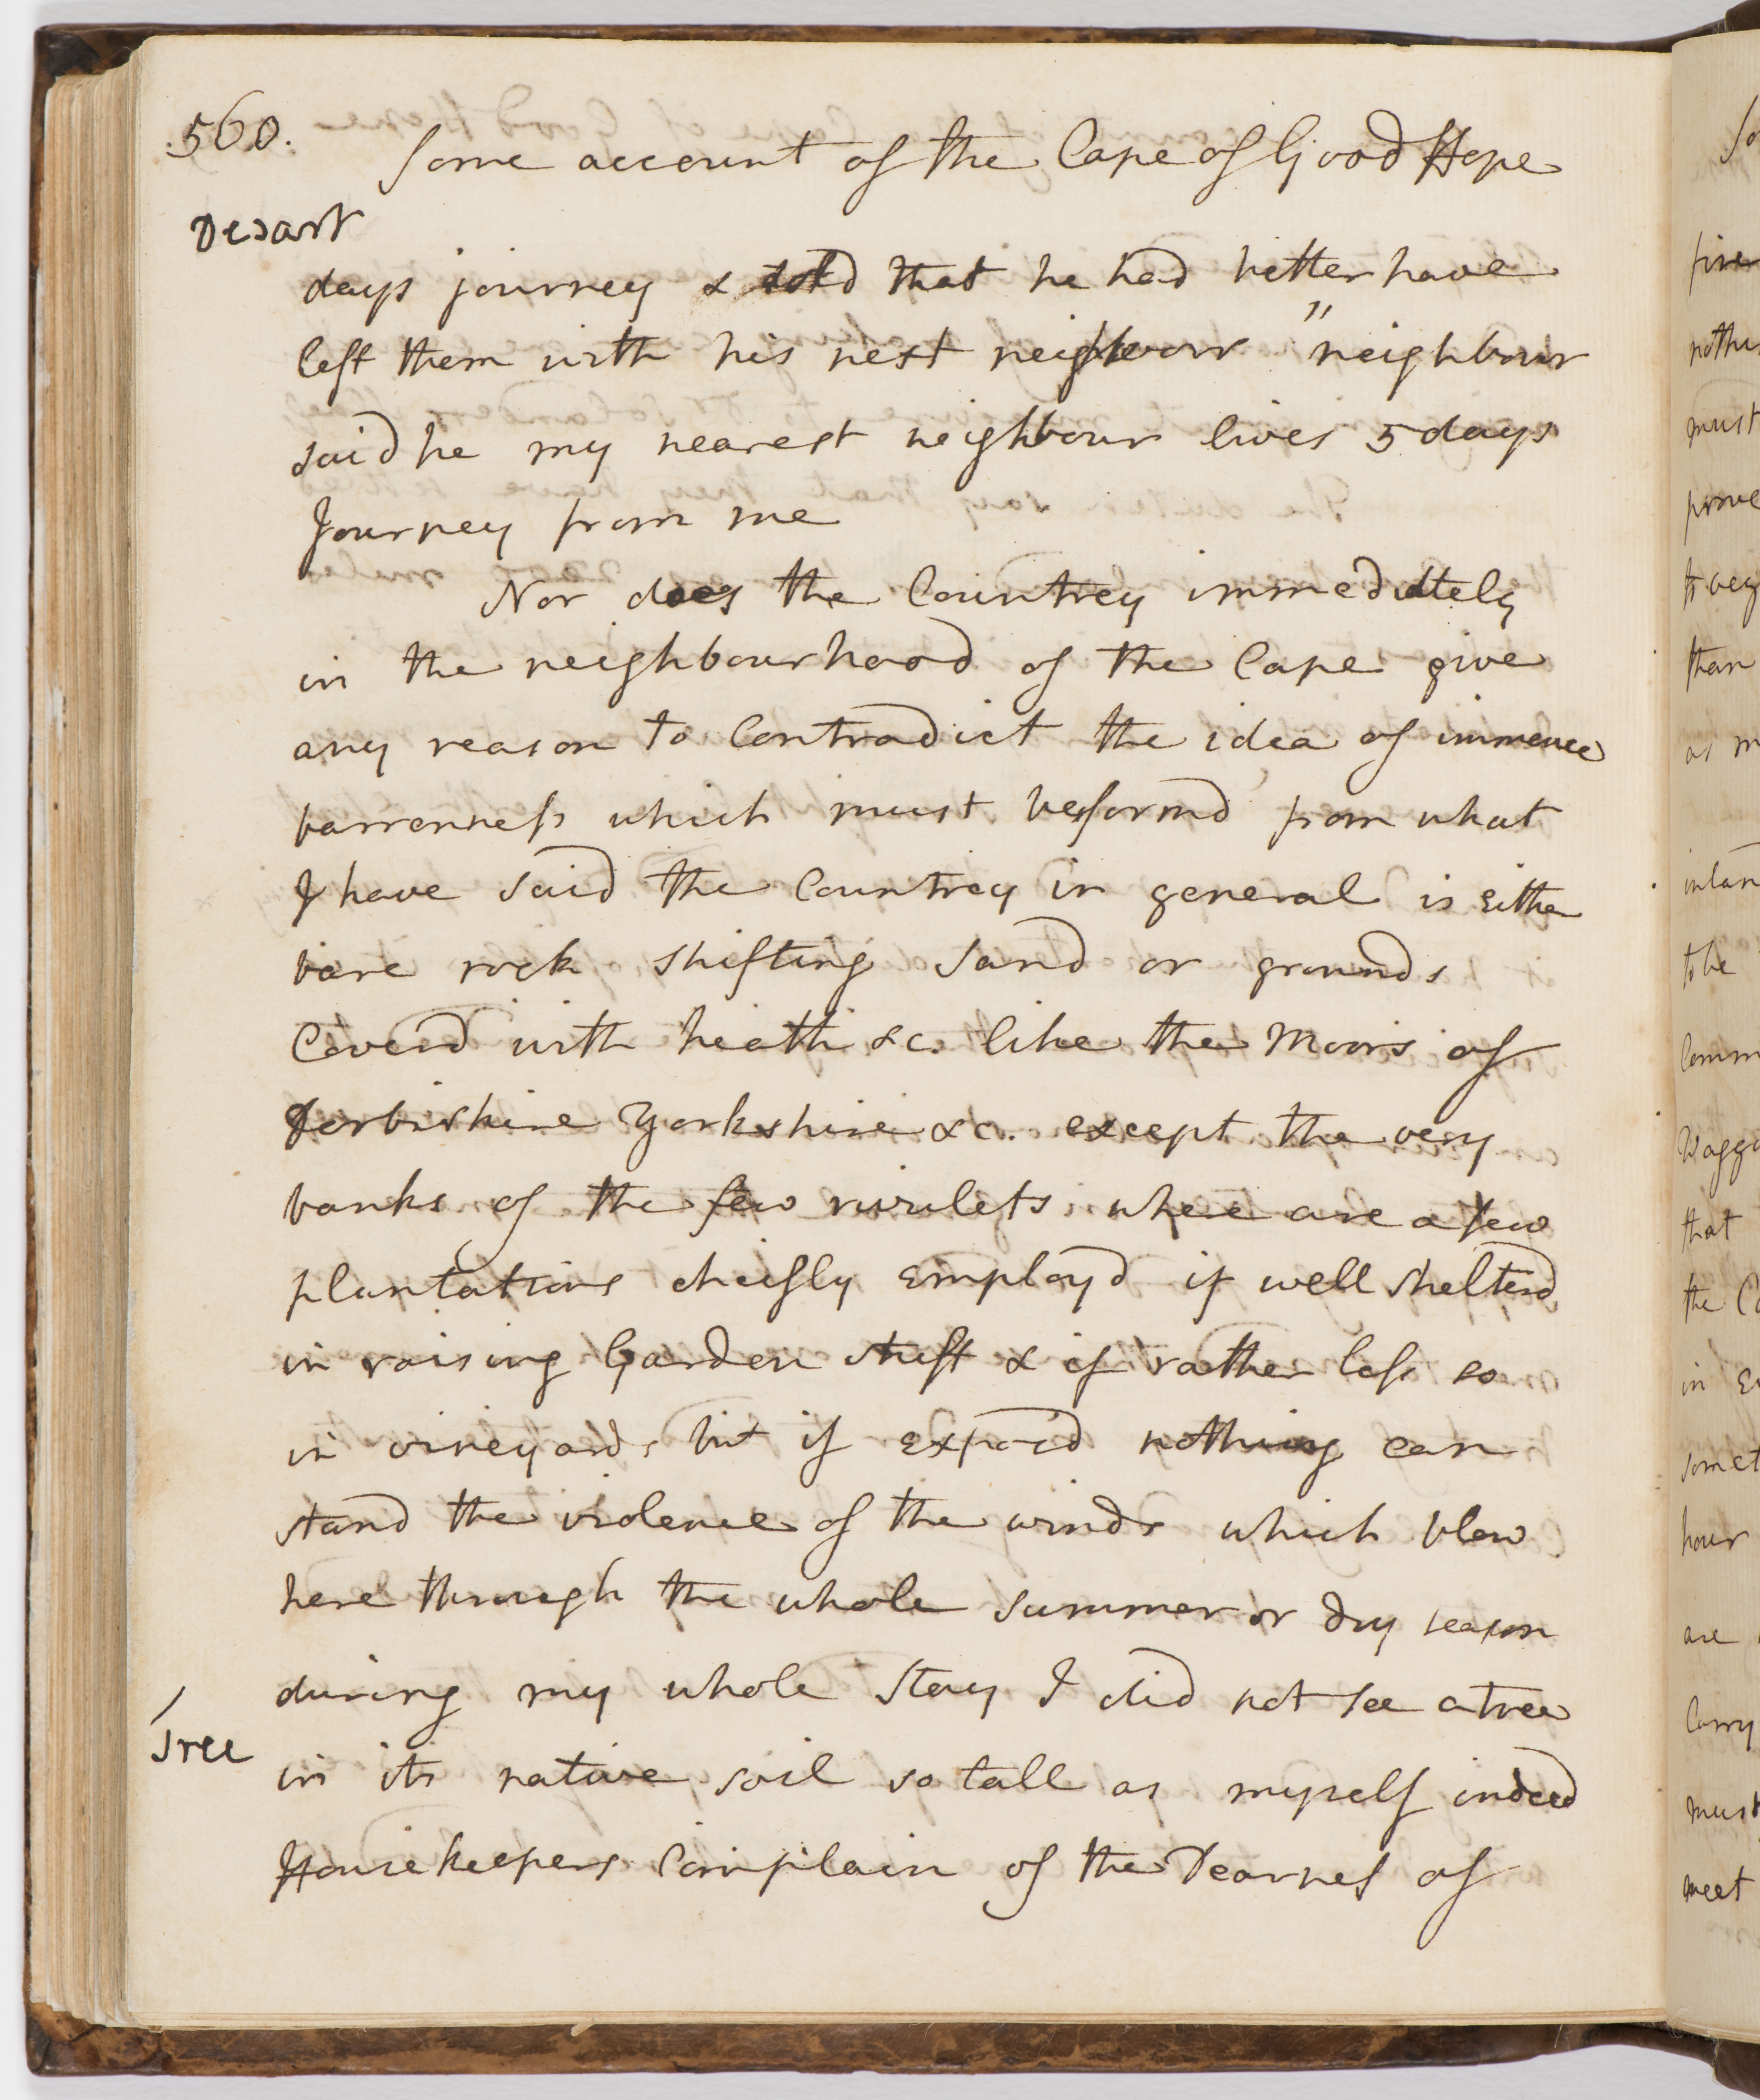 560.
Some account of the Cape of Good Hope
Desart
days journey & told that he had better have
left them with his next neighbour "neighbour
said he my nearest neighbour lives 5 days
Journey from me
Nor does the Countrey immediately
in the neighbourhood of the Cape give
any reason to Contradict the idea of immence
barrenness which must be formd from what
I have said the Countrey in general is Either
bare rock shifting Sand or grounds
Coverd with heath &c. like the Moors of
Derbishire Yorkshire &c. except the very
banks of the few rivulets where are a few
plantations cheifly Employd if well Shelterd
in raising Garden stuff & if rather less so
in vineyards but if Exposd nothing can
stand the violence of the winds which blow
here through the whole Summer or dry season
during my whole Stay I did not see a tree
Tree
in its native soil so tall as myself indeed
Housekeepers Complain of the Dearness of
So
fire
nothi
must
prove
to veg
than
as m
inlan
to be
Comm
Waggo
that
the Ca
in Ev
somet
hour
are
Carry
must
meet